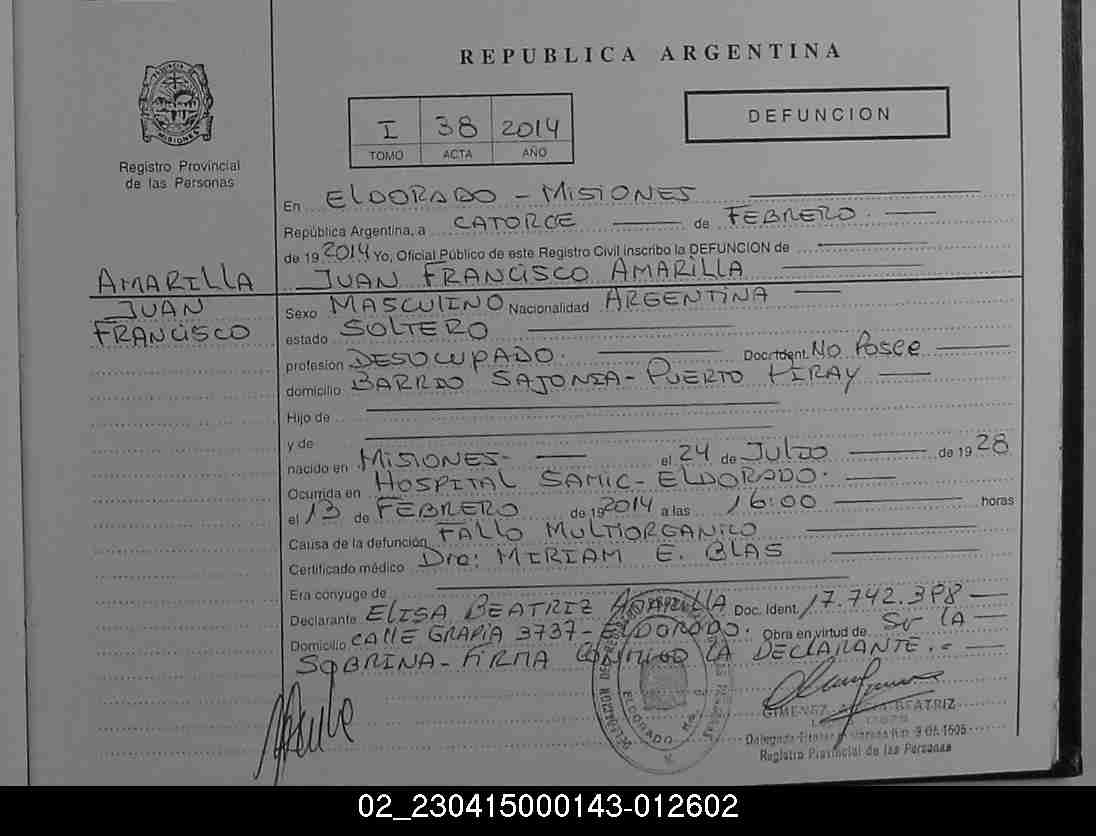 REPUBLICA ARGENTINA
PROVINCIA DE MISIONES
Registro Provincial
de las Personas
I 38 2014
TOMO ACTA AÑO
DEFUNCION
En ELDORADO - MISIONES
República Argentina, a CATORCE de FEBRERO.
de 19 2014 Yo, Oficial Público de este Registro Civil inscribo la DEFUNCION de
JUAN FRANCISCO AMARILLA
AMARILLA
JUAN
FRANCISCO
Sexo MASCULINO Nacionalidad ARGENTINA
estado SOLTERO
profesión DESOCUPADO. Doc. Ident. No Posee
domicilio BARRIO SAJONIA - PUERTO PIRAY
Hijo de
y de
nacido en MISIONES- el 24 de JULIO de 19 28
Ocurrida en HOSPITAL SAMIC - ELDORADO.
el 13 de FEBRERO de 19 2014 a las 16:00 horas
Causa de la defunción FALLO MULTIORGANICO
Certificado médico Dra: MIRIAM E. BLAS
Era cónyuge de
Declarante ELISA BEATRIZ AMARILLA Doc. Ident. 17.742.398
Domicilio CALLE GRAPIA 3737 - ELDORADO. Obra en virtud de Sr LA
SOBRINA - FIRMA CONMIGO LA DECLARANTE.=
ELDORADO
GIMENEZ BEATRIZ
Delegada Titular
Registro Provincial de las Personas
02_230415000143-012602